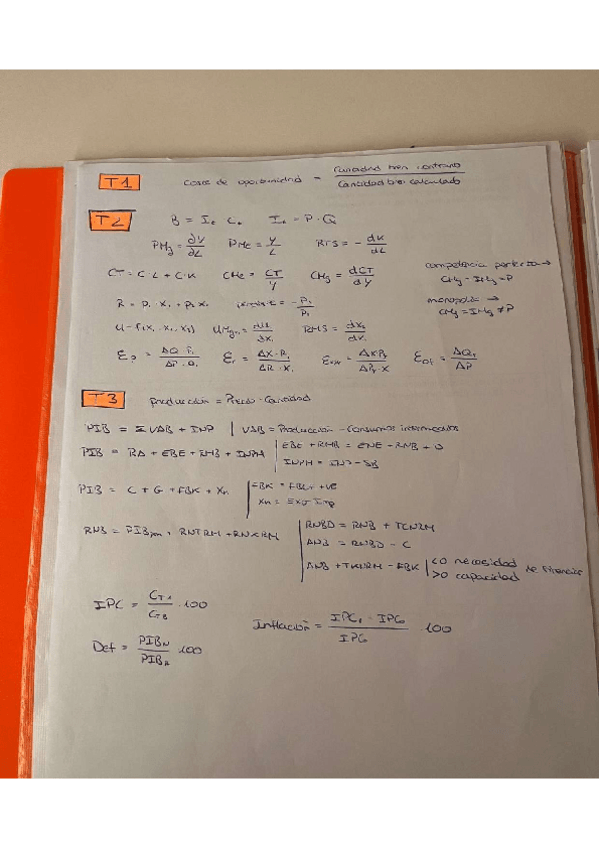 T1 Coste de oportunidad = Cantidad bien contrario / Cantidad bien calculado
T2 B = It - Ct It = P · Q
PMg = ∂Y/∂L PMe = Y/L RTS = - dK/dL
CT = C·L + C·K CMe = CT/Y CMg = dCT/dY competencia perfecta →
CMg = IMg = P
R = P1 · X1 + P2 X2 = - P1/P2 monopolio →
CMg = IMg ≠ P
U = f(X1, X2, X3) UMg = dU/dX1 RMS = dX2/dX1
Ep = ΔQ · P1 / ΔP · Q1 Er = ΔX · R1 / ΔR · X1
T3 Producción = Precio · Cantidad
PIB = ΣVAB + INP | VAB = Producción - Consumos intermedios
PIB = RA + EBE + RMB + INPM | EBE + RMB = ENE + RNB + D
INPM = INP - SB
PIB = C + G + FBK + Xn | FBK = FBCF + VE
Xn = Exp - Imp
RNB = PIBpm + RNTRM + RNKRM | RNBD = RNB + TCNRM
ANB = RNBD - C
ANB + TKNRM - FBK | <0 necesidad
>0 capacidad de financiación
IPC = CT1/CTB · 100 Inflación = IPC1 - IPC0 / IPC0 · 100
Def = PIBN/PIBR · 100